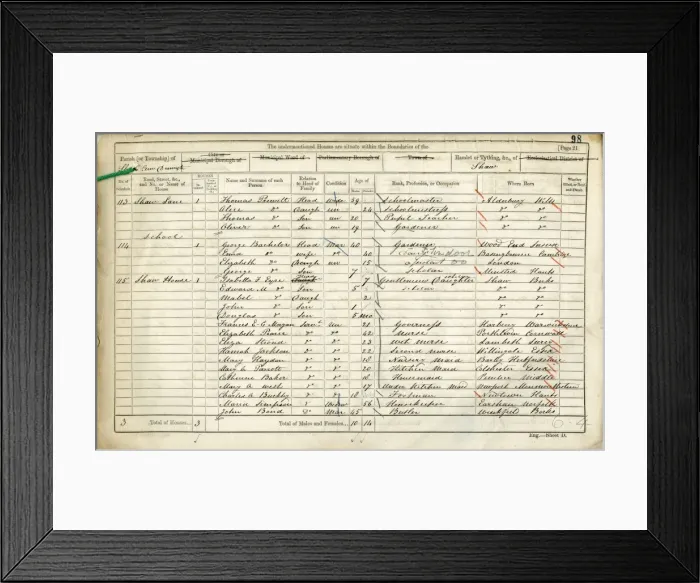 98
The undermentioned Houses are situate within the Boundaries of the
[Page 21
Parish [or Township] of
City or Municipal Borough of
Municipal Ward of
Parliamentary Borough of
Town of
Hamlet or Tything, &c., of
Ecclesiastical District of
Shaw cum Donnington
Shaw
No. of Schedule
Road, Street, &c., and No. or Name of House
HOUSES
Name and Surname of each Person
Relation to Head of Family
Condition
Age of
Rank, Profession, or Occupation
Where Born
Whether Blind, or Deaf-and-Dumb
113 Shaw Lane 1 Thomas Head Widr 59 Schoolmaster Wilts
Alice Do Daugh un 24 Schoolmistress Do Do
Thomas Do Son un 20 Pupil Teacher Do Do
Oliver Do Son un 19 Gardener Do Do
School
114 1 George Batchelor Head Mar 40 Gardener Wood End Sussex
Emma Do wife Do 40
Elizabeth Do Daugh un 15 London
George Do Son 7 Scholar Hants
115 Shaw House 1 Isabella F. Eyre 7 Gentlemans Daughter Shaw Berks
Edward M. Do Son 5 scholar Do Do
Mabel Do Daugh 2 Do Do
John Do Son 1 Do Do
Douglas Do Son 5 mo Do Do
Frances E. C. Servt un 21 Governess Harbury Warwickshire
Elizabeth Pearce Do Do 42 Nurse Cornwall
Eliza Do Do 23 Wet Nurse Lambeth Surrey
Hannah Jackson Do Do 22 Second Nurse Willingale Essex
Mary Haydon Do Do 18 Nursery Maid Hertfordshire
Mary A. Parrott Do Do 20 Kitchen Maid Colchester Essex
Catherine Baker Do Do 18 Housemaid Middx
Mary A. West Do Do 17 Under Kitchen Maid Newport Monmouthshire
Charles A. Buckby Do Do 18 Footman Newtown Hants
Maria Simpson Do Widow 56 Housekeeper Earsham Norfolk
John Bond Do Mar 45 Butler Berks
3 Total of Houses... 3 Total of Males and Females... 10 14
Eng.—Sheet D.